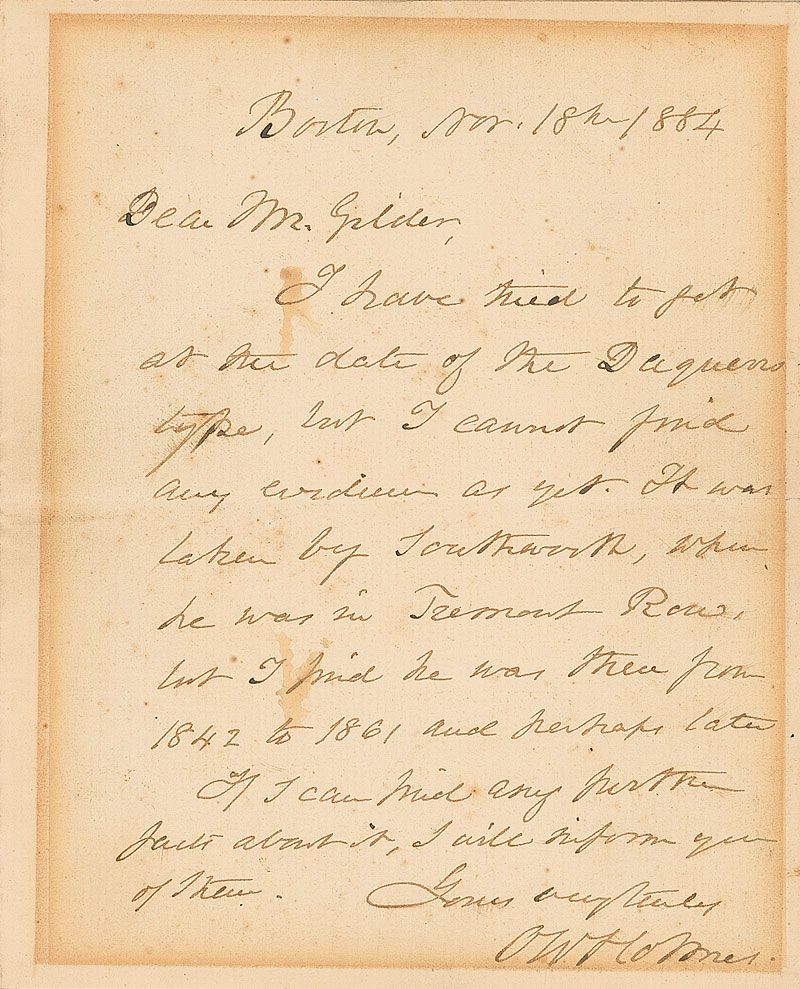 Boston, Nov. 18th 1884
Dear Mr. Gilder,
I have tried to get
at the date of the Daguerro
type, but I cannot find
any evidence as yet. It was
taken by Southworth, when
he was in Tremont Row,
but I find he was there from
1842 to 1861 and perhaps later
If I can find any further
facts about it, I will inform you
of them. Yours very truly
O W Holmes.